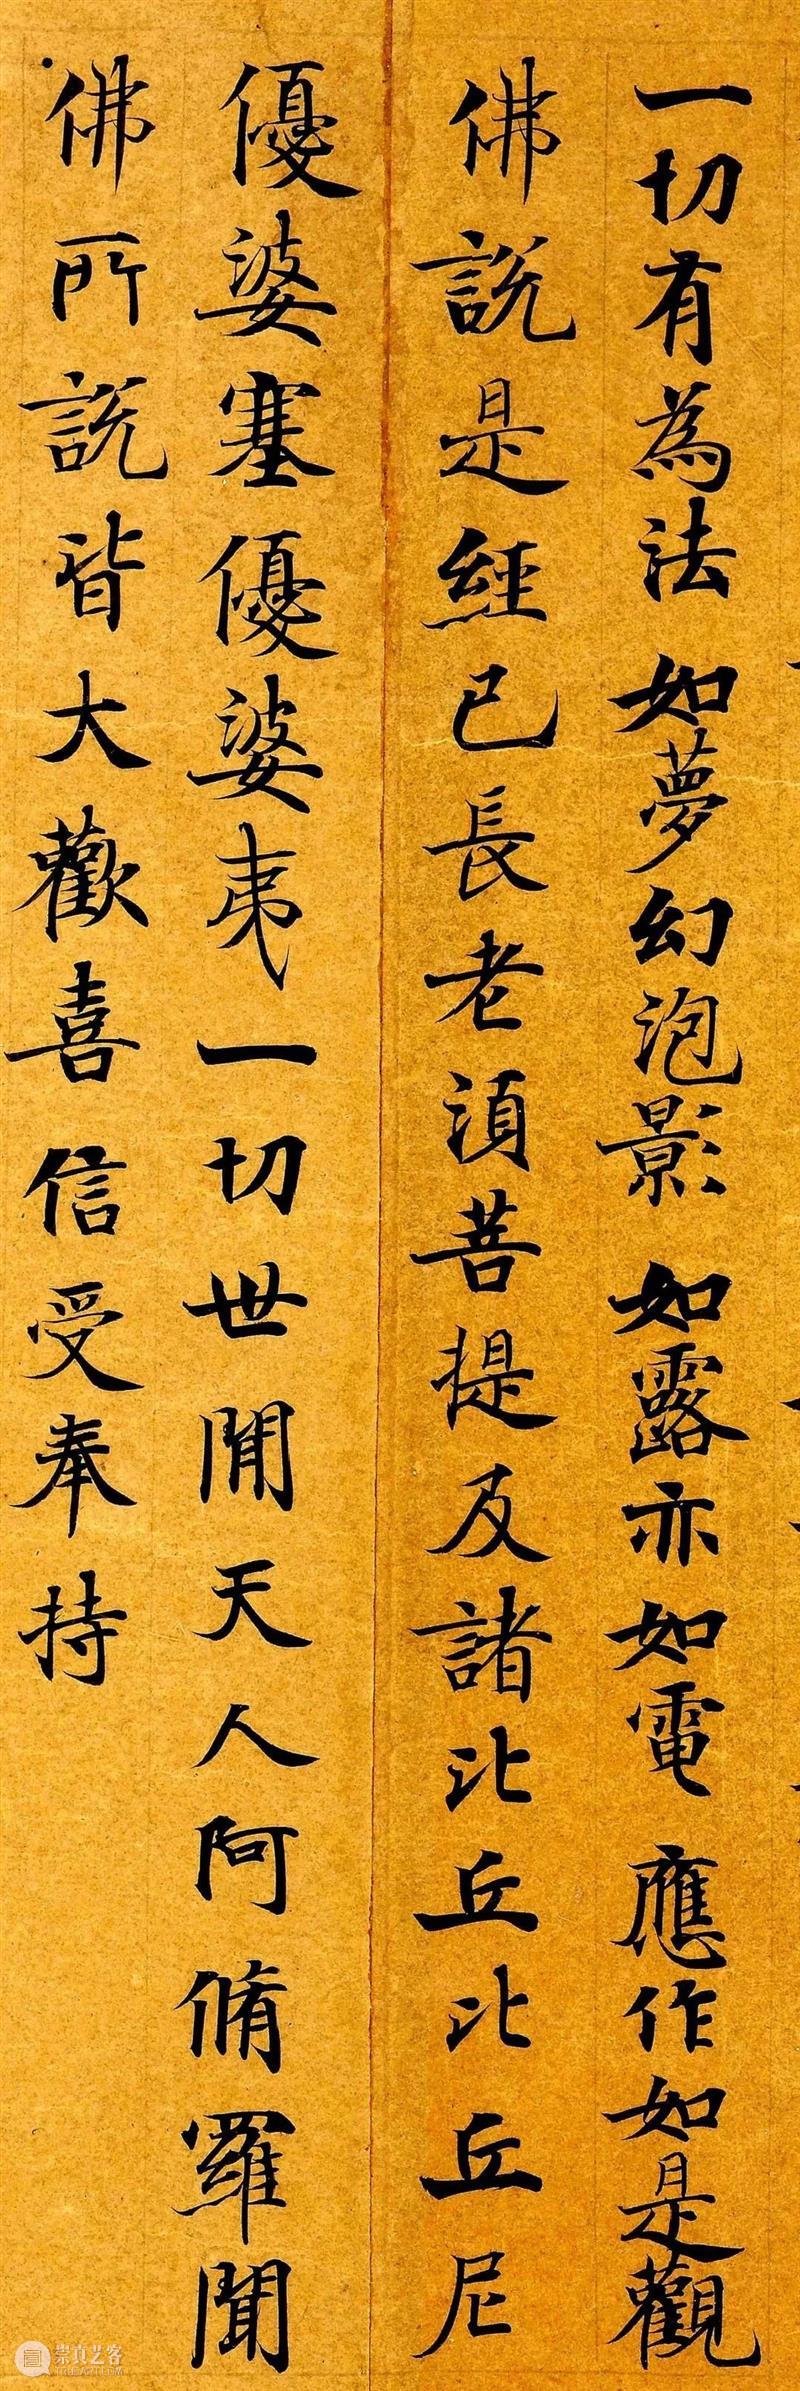 一切有為法 如夢幻泡影 如露亦如電 應作如是觀
佛說是經已長老須菩提及諸比丘比丘尼
優婆塞優婆夷一切世間天人阿脩羅聞
佛所說皆大歡喜 信受奉持
崇真艺客
TRUEART.COM